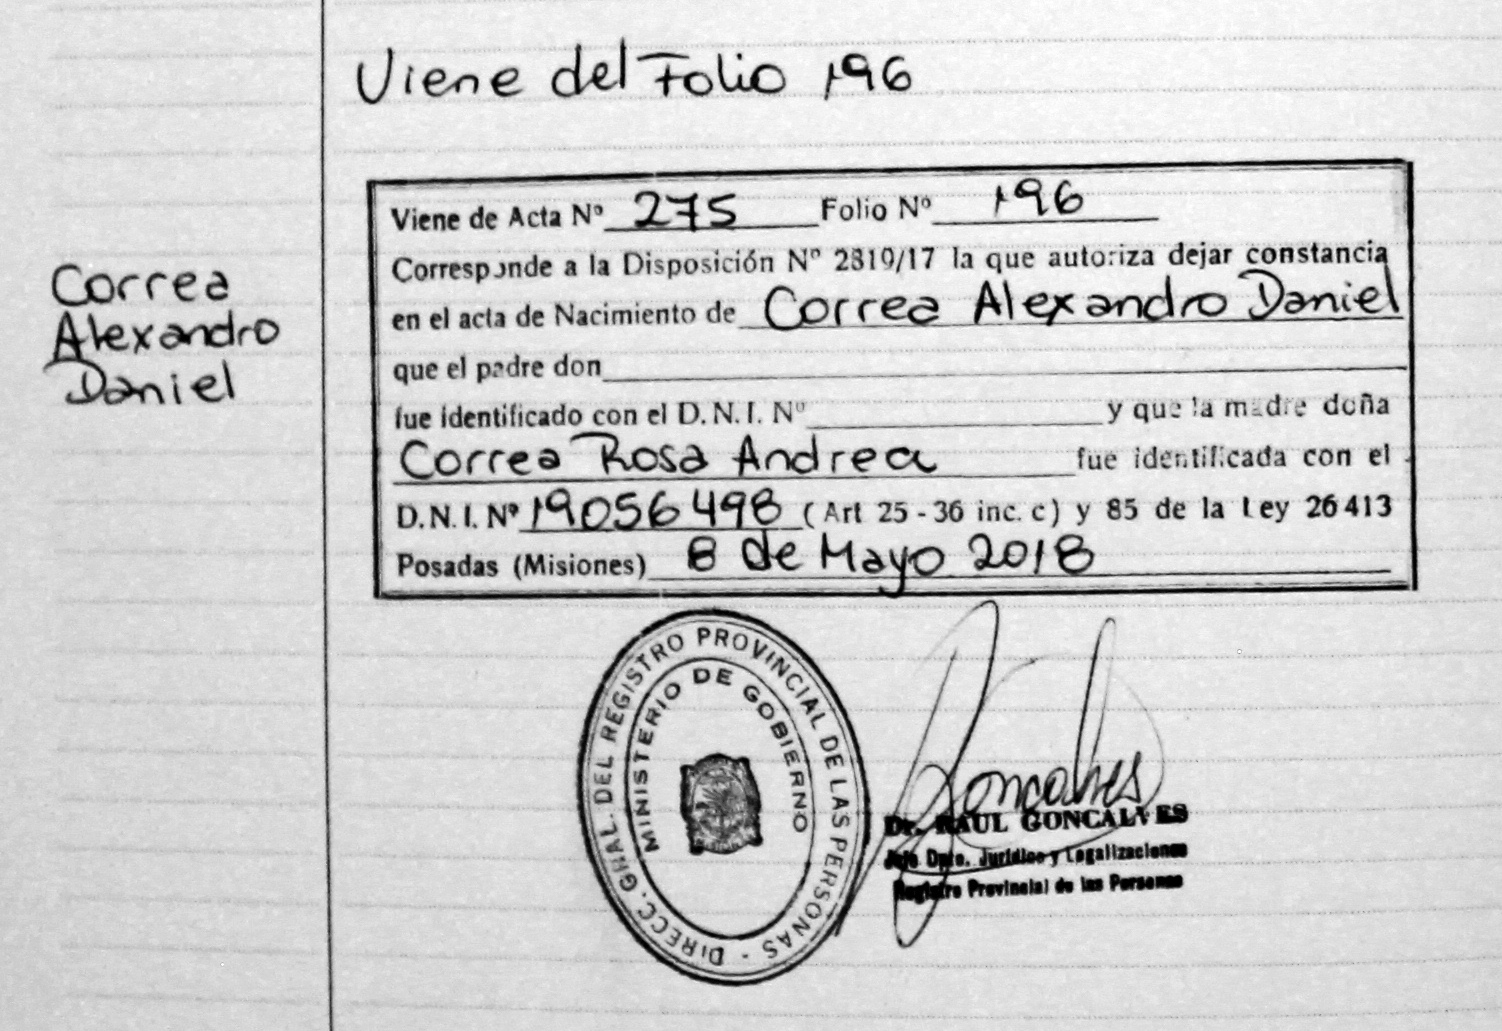 Viene del Folio 196
Correa
Alexandro
Daniel
Viene de Acta Nº 275 Folio Nº 196
Corresponde a la Disposición Nº 2819/17 la que autoriza dejar constancia
en el acta de Nacimiento de Correa Alexandro Daniel
que el padre don
fue identificado con el D.N.I. Nº y que la madre doña
Correa Rosa Andrea fue identificada con el
D.N.I. Nº 19056498 (Art 25 - 36 inc. c) y 85 de la Ley 26413
Posadas (Misiones) 8 de Mayo 2018
DIRECC. GRAL. DEL REGISTRO PROVINCIAL DE LAS PERSONAS -
MINISTERIO DE GOBIERNO
Goncalves
Dr. RAUL GONCALVES
Jefe Dpto. Jurídico y Legalizaciones
Registro Provincial de las Personas